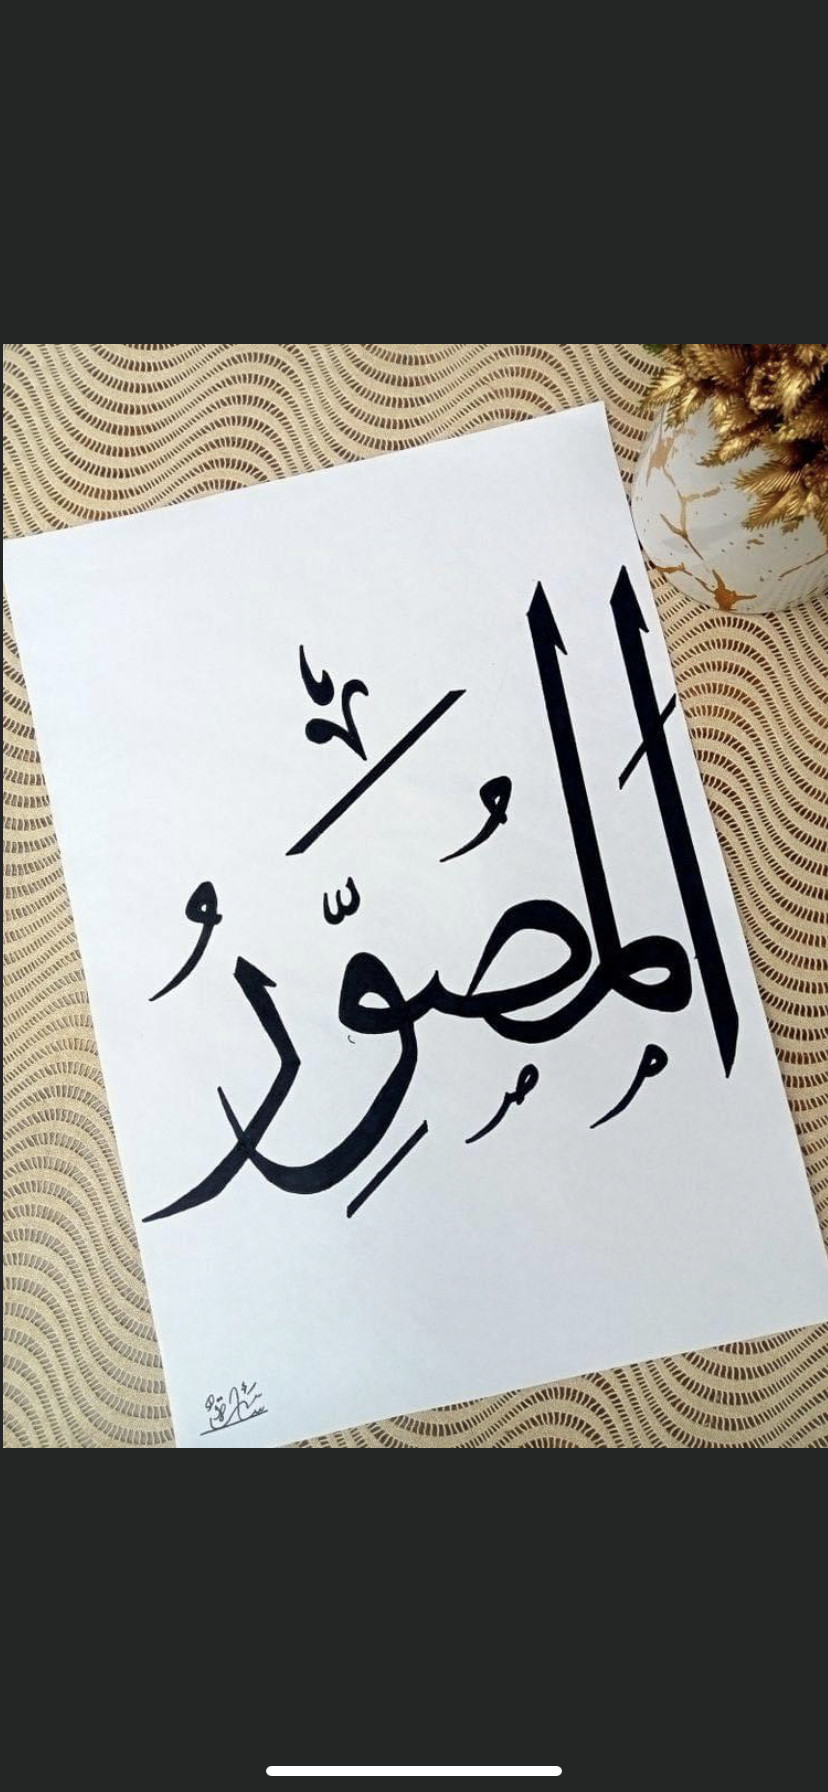 المُصَوِّرُ